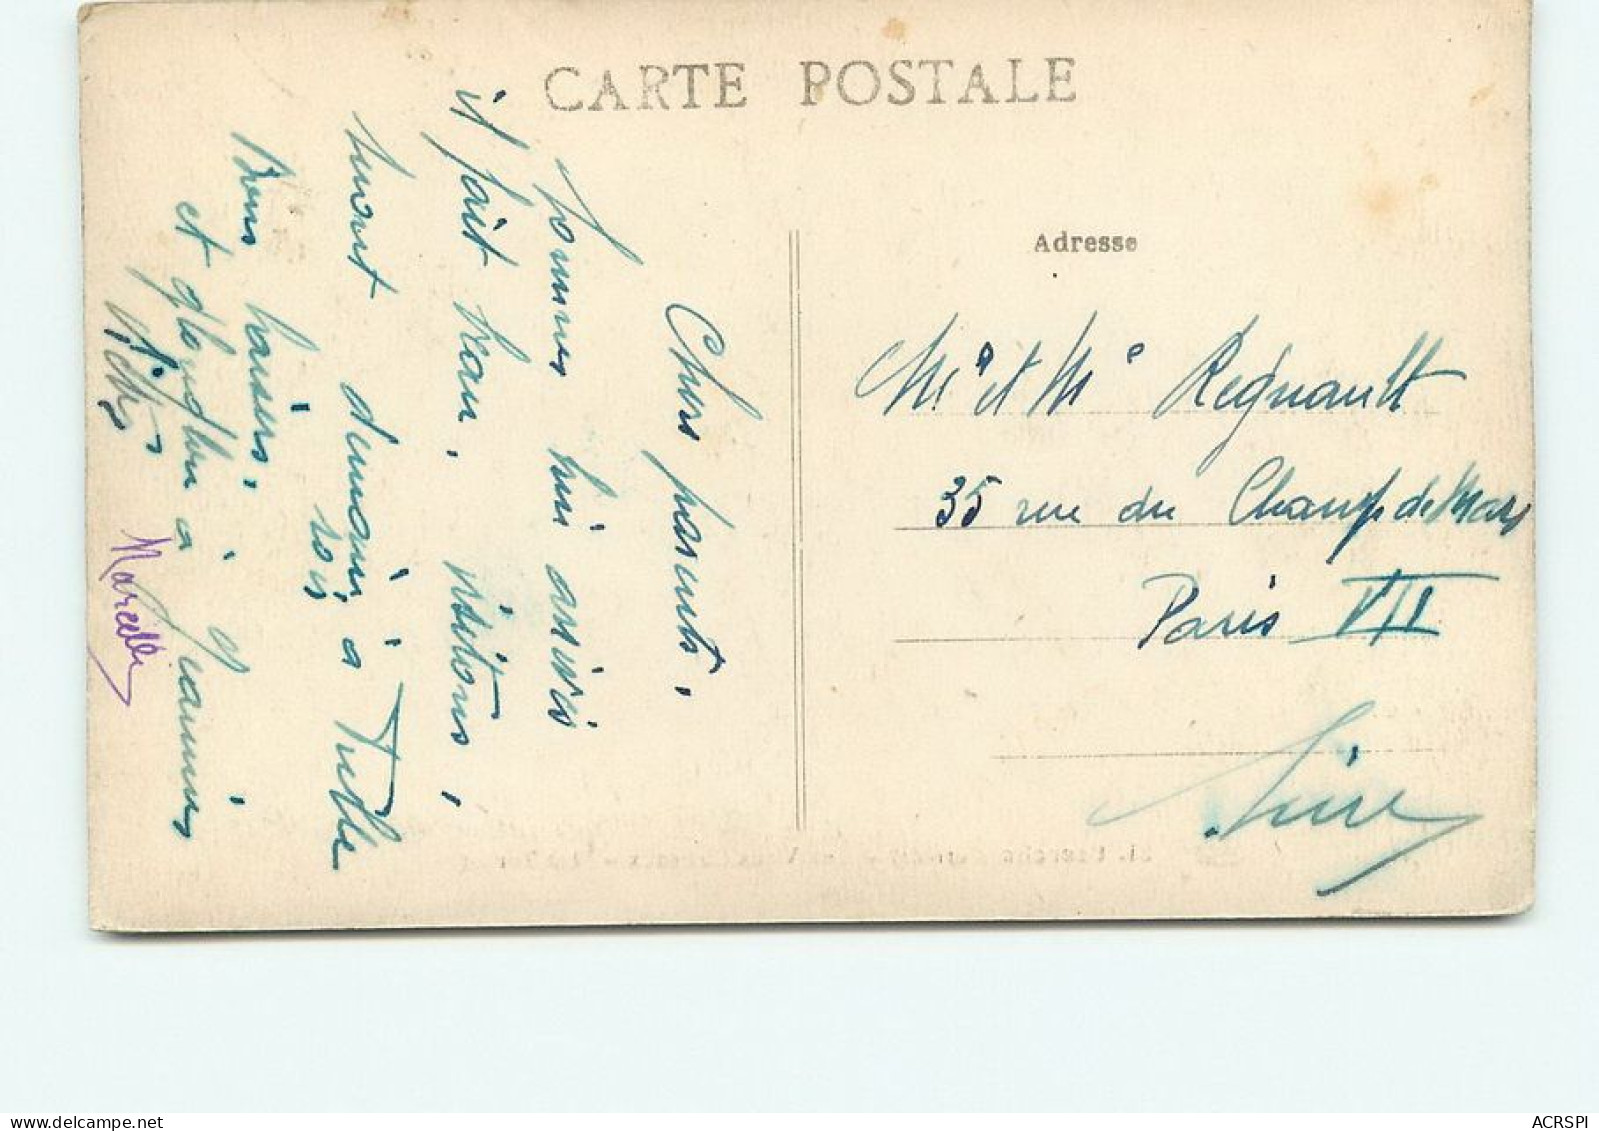 CARTE POSTALE
Chers parents,
Sommes bien arrivés
il fait beau. visitons,
demain, à
soir
Bons baisers,
et à Jeannine
Marcelle
Adresse
Mr et Me Regnault
35 rue du Champ de Mars
Paris VII
Seine
ACRSPI